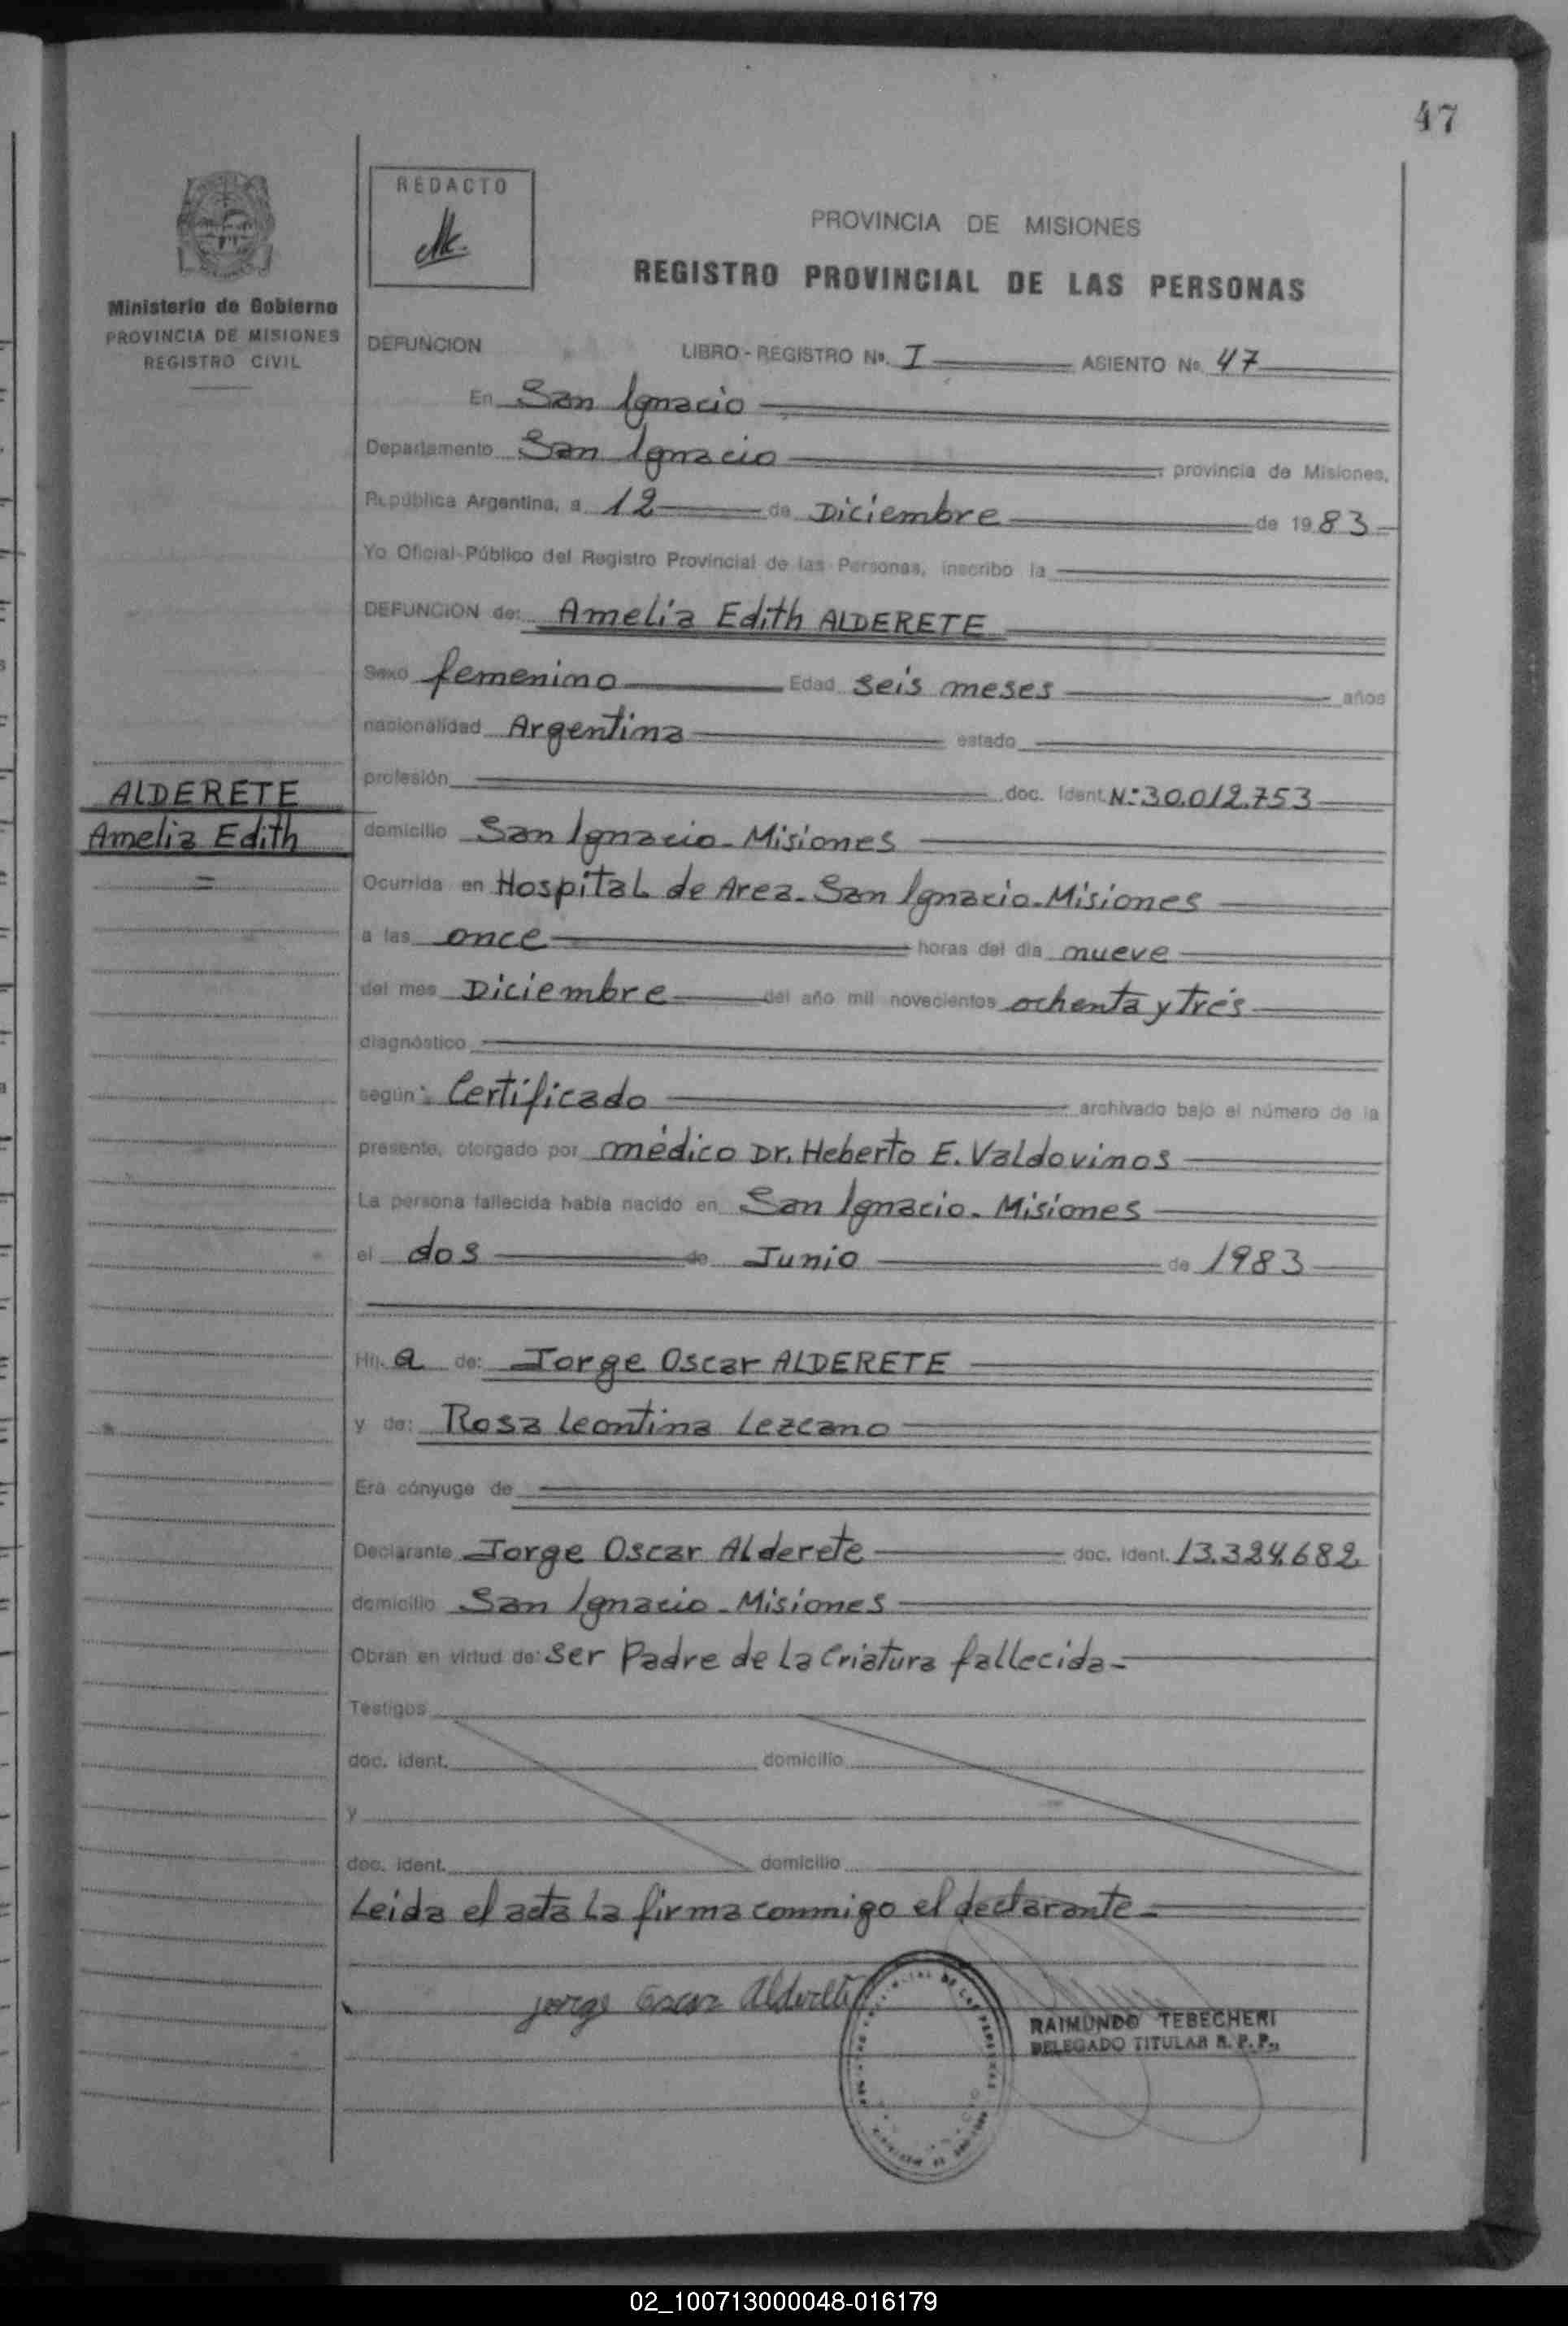 47
REDACTO
PROVINCIA DE MISIONES
REGISTRO PROVINCIAL DE LAS PERSONAS
Ministerio de Gobierno
PROVINCIA DE MISIONES
REGISTRO CIVIL
DEFUNCION LIBRO - REGISTRO Nº. I ASIENTO Nº. 47
En San Ignacio
Departamento San Ignacio provincia de Misiones,
República Argentina, a 12 de Diciembre de 1983
Yo Oficial Público del Registro Provincial de las Personas, inscribo la
DEFUNCION de: Amelia Edith ALDERETE
Sexo femenino Edad seis meses años
nacionalidad Argentina estado
profesión doc. ident. Nº 30.012.753
ALDERETE
Amelia Edith
domicilio San Ignacio - Misiones
Ocurrida en Hospital de Area - San Ignacio - Misiones
a las once horas del día nueve
del mes Diciembre del año mil novecientos ochenta y trés
diagnóstico
según: Certificado archivado bajo el número de la
presente, otorgado por médico Dr. Heberto E. Valdovinos
La persona fallecida había nacido en San Ignacio - Misiones
el dos de Junio de 1983
Hij a de: Jorge Oscar ALDERETE
y de: Rosa Leontina Lezcano
Era cónyuge de
Declarante Jorge Oscar Alderete doc. ident. 13.324.682
domicilio San Ignacio - Misiones
Obran en virtud de: ser Padre de La Criatura fallecida -
Testigos
doc. ident. domicilio
y
doc. ident. domicilio
Leida el acta La firma conmigo el declarante -
Jorge Oscar Alderete
RAIMUNDO TEBECHERI
DELEGADO TITULAR R. P. P.
02_100713000048-016179